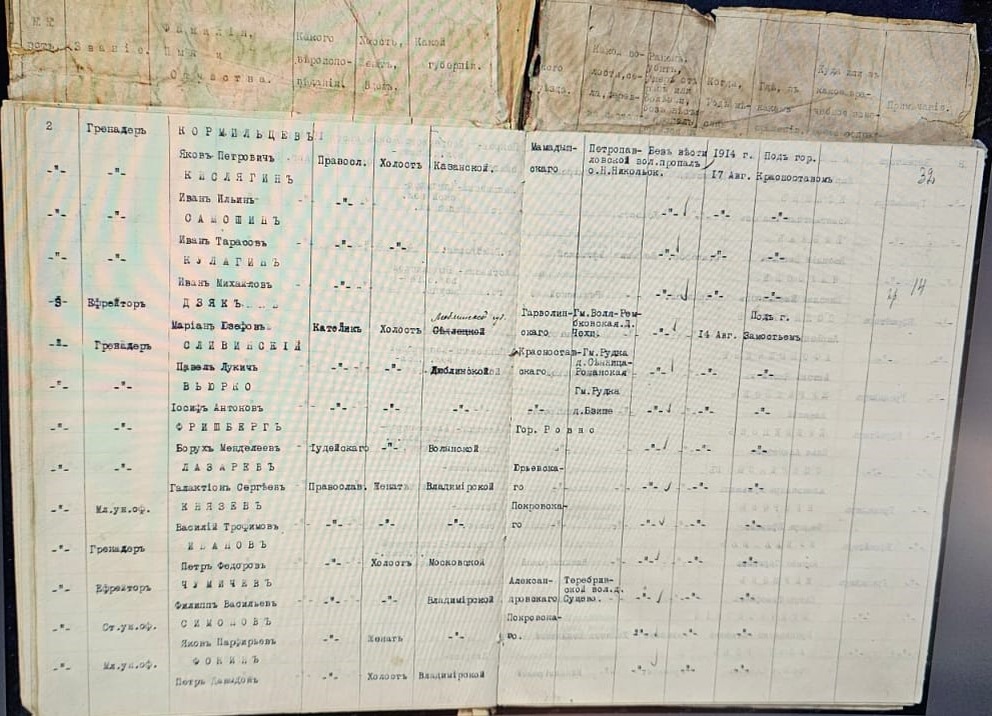 Званіе.
Фамилія,
Имя и
Отчества.
Какого
вѣроиспо-
вѣданія.
Холостъ,
Женатъ,
Вдовъ.
Какой
губерніи.
Примѣчаніе.
2 Гренадеръ КОРМИЛЬЦЕВЪ
Яковъ Петровичъ Правосл. Холостъ Казанской Мамадып-
скаго Петропав-
ловской вол.
с.Н.Никольск. Безъ вѣсти
пропалъ 1914 г.
17 Авг. Подъ гор.
Красноставомъ 32
-"- -"- КИСЛЯГИНЪ
Иванъ Ильинъ -"- -"- -"- -"-
-"- -"- САМОШИНЪ
Иванъ Тарасовъ -"- -"- -"- -"- -"-
-"- -"- КУЛАГИНЪ
Иванъ Михайловъ -"- -"- -"- -"- 14
Ефрейторъ ДЗЯКЪ
Маріанъ Юзефовъ Католикъ Холостъ Гарволин-
скаго Гм.Воля-Рем-
бковская.Д. -"- 14 Авг. Подъ г.
Замостьемъ
-"- Гренадеръ СЛИВИНСКІЙ
Павелъ Лукичъ -"- -"- Люблинской Красностав-
скаго Гм.Рудка -"- -"- -"-
-"- -"- ВЬЮРКО
Іосифъ Антоновъ -"- -"- -"- -"- Гм.Рудка -"- -"-
-"- -"- ФРИШБЕРГЪ
Борухъ Менделеевъ Іудейскаго -"- Волынской Гор. Ровно -"- -"- -"-
-"- -"- ЛАЗАРЕВЪ
Галактіонъ Сергѣевъ Православ. Женатъ Владимірской Юрьевска-
го -"- -"- -"-
-"- Мл.ун.оф. КНЯЗЕВЪ
Василій Трофимовъ -"- -"- -"- Покровска-
го -"- -"- -"-
-"- Гренадеръ ИВАНОВЪ
Петръ Федоровъ Холостъ Московской -"- -"- -"-
-"- Ефрейторъ ЧУМИЧЕВЪ
Филиппъ Васильевъ Владимірской Алексан-
дровскаго -"- -"- -"-
-"- Ст.ун.оф. СИМОНОВЪ
Яковъ Парфирьевъ -"- Женатъ -"- Покровска-
го. -"- -"- -"-
-"- Мл.ун.оф. ФОКИНЪ
Петръ Давыдовъ -"- Холостъ Владимірской -"- -"- -"-